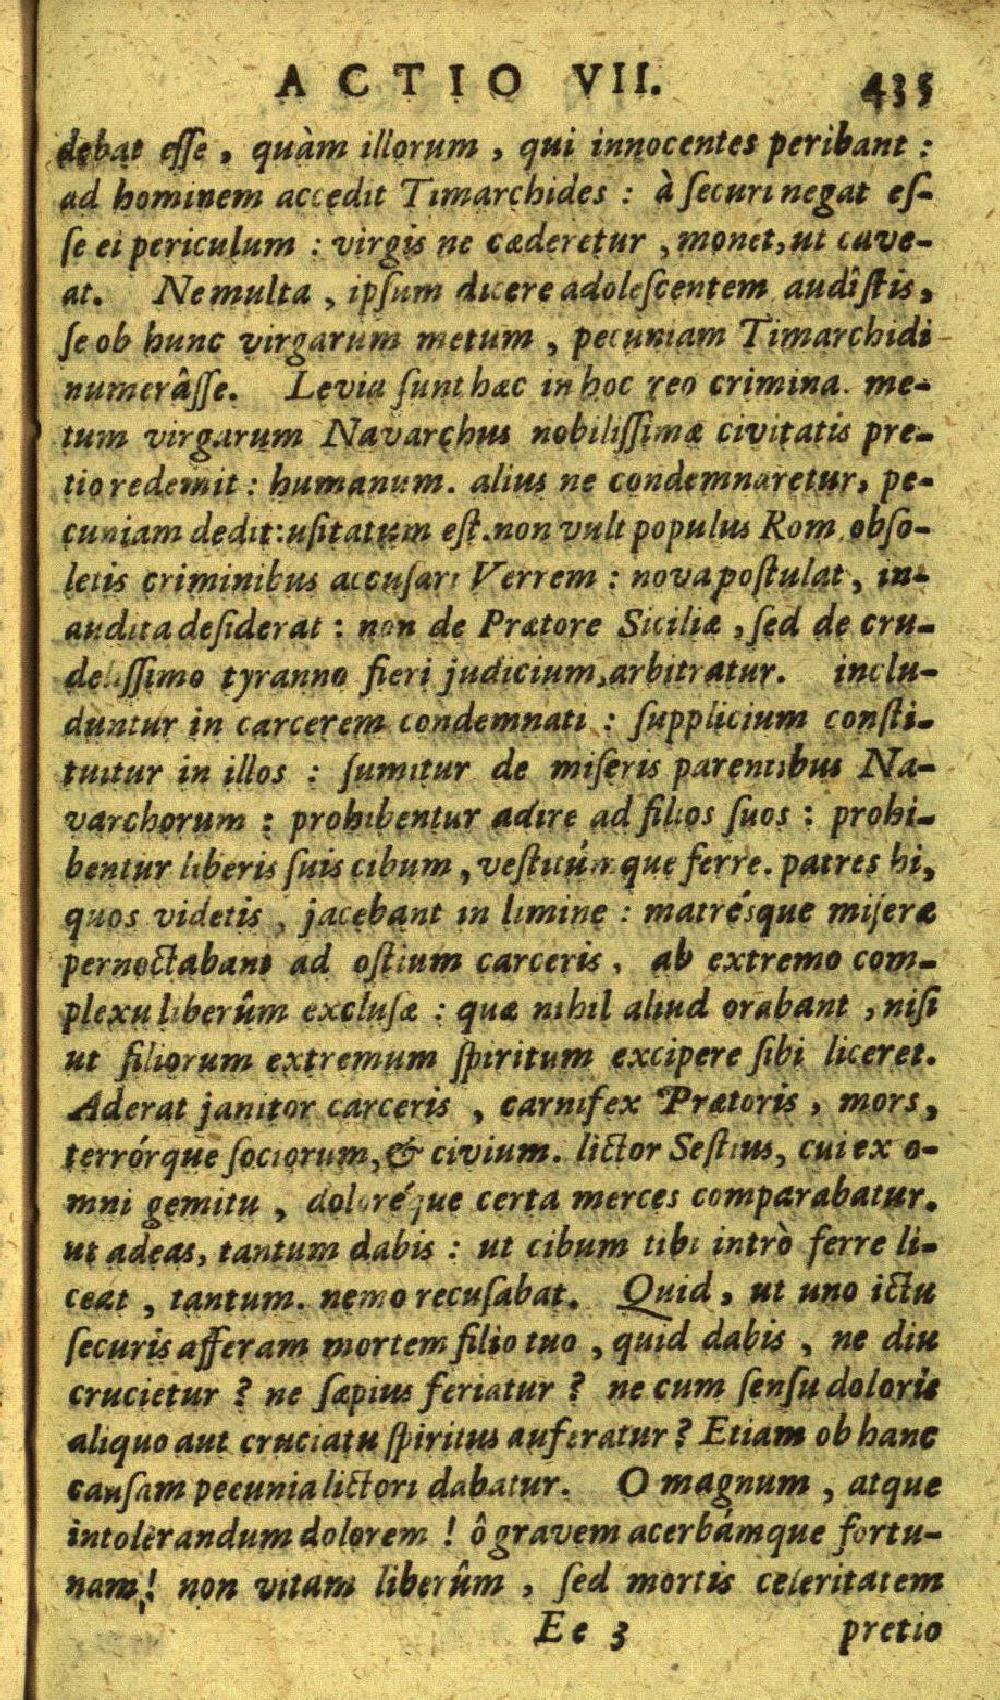 ACTIO VII. 435
debat eſſe, quàm illorum, qui innocentes peribant:
ad hominem accedit Timarchides: à ſecuri negat eſ-
ſe ei periculum: virgis ne cæderetur, monet, ut cave-
at. Ne multa, ipſum dicere adoleſcentem audîſtis,
ſe ob hunc virgarum metum, pecuniam Timarchidi
numerâſſe. Levia ſunt hæc in hoc reo crimina. me-
tum virgarum Navarchus nobiliſſimæ civitatis pre-
tio redemit: humanum. alius ne condemnaretur, pe-
cuniam dedit: uſitatum eſt. non vult populus Rom. obſo-
letis criminibus accuſari Verrem: nova poſtulat, in-
audita deſiderat: non de Prætore Siciliæ, ſed de cru-
deliſſimo tyranno fieri judicium, arbitratur. inclu-
duntur in carcerem condemnati: ſupplicium conſti-
tuitur in illos: ſumitur de miſeris parentibus Na-
varchorum: prohibentur adire ad filios ſuos: prohi-
bentur liberis ſuis cibum, veſtitúmque ferre. patres hi,
quos videtis, jacebant in limine: matréſque miſeræ
pernoctabant ad oſtium carceris, ab extremo com-
plexu liberûm excluſæ: quæ nihil aliud orabant, niſi
ut filiorum extremum ſpiritum excipere ſibi liceret.
Aderat janitor carceris, carnifex Prætoris, mors,
terrórque ſociorum, & civium. lictor Seſtius, cui ex o-
mni gemitu, doloréque certa merces comparabatur.
ut adeas, tantum dabis: ut cibum tibi intrò ferre li-
ceat, tantum. nemo recuſabat. Quid, ut uno ictu
ſecuris afferam mortem filio tuo, quid dabis, ne diu
crucietur? ne ſæpius feriatur? ne cum ſenſu doloris
aliquo aut cruciatu ſpiritus auferatur? Etiam ob hanc
cauſam pecunia lictori dabatur. O magnum, atque
intolerandum dolorem! ô gravem acerbámque fortu-
nam! non vitam liberûm, ſed mortis celeritatem
Ee 3 pretio